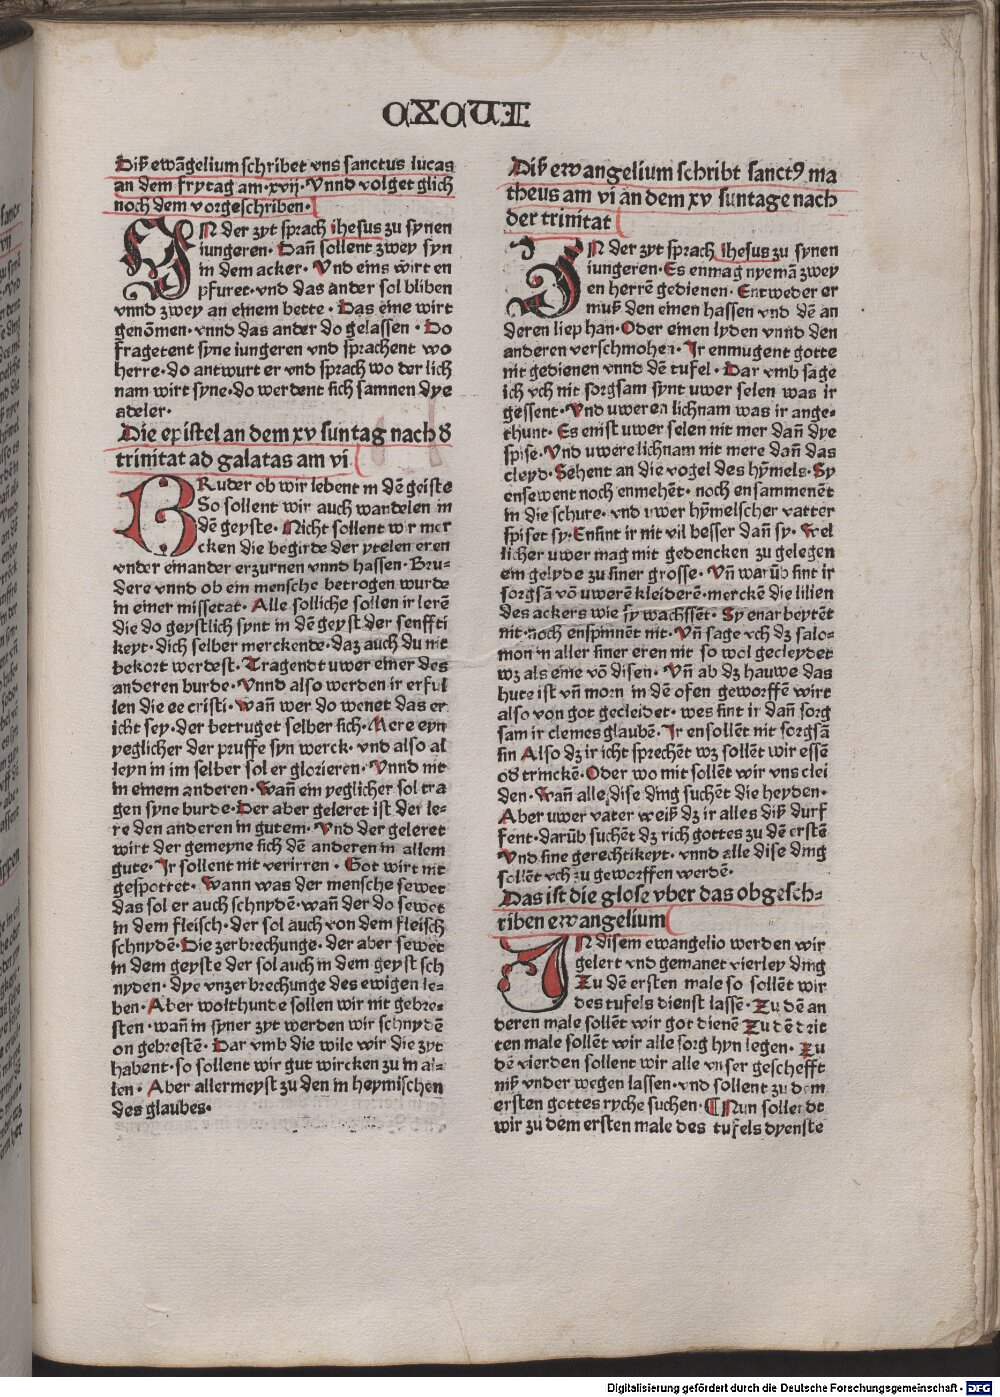 CXCVI
Diß ewãgelium schribet vns sanctus lucas
an dem frytag am·xvij·Vnnd volget glich
noch dem vorgeschriben·
IN der zyt sprach ihesus zu synen
iungeren· Dañ sollent zwey syn
in dem acker· Vnd eins wirt en
pfuret·vnd das ander sol bliben
vnnd zwey an einem bette· Das eine wirt
genõmen·vnnd das ander do gelassen· Do
fragetent syne iungeren vnd sprachent wo
herre·do antwurt er vnd sprach wo der lich
nam wirt syne·do werdent sich samnen dye
adeler·
Die epistel an dem xv suntag nach d̕
trinitat ad galatas am vi
BRuder ob wir lebent in dẽ geiste
So sollent wir auch wandelen in
dẽ geyste· Nicht sollent wir mer
cken die begirde der ytelen eren
vnder einander erzurnen vnnd hassen· Bru-
dere vnnd ob ein mensche betrogen wurde
in einer missetat· Alle solliche sollen ir lerẽ
die do geystlich synt in dẽ geyst der senffti
keyt·dich selber merckende·daz auch du nit
bekort werdest· Tragendt uwer einer des
anderen burde·Vnnd also werden ir erful
len die ee cristi·wañ wer do wenet das er
icht sey·der betruget selber sich·Mere eyn
yeglicher der pruffe syn werck·vnd also al
leyn in im selber sol er glorieren·Vnnd nit
in einem anderen·Wañ ein yeglicher sol tra
gen syne burde·Der aber geleret ist der le-
re den anderen in gutem·Vnd der geleret
wirt der gemeyne sich dẽ anderen in allem
gute· Ir sollent nit verirren· Got wirt nit
gespottet· Wann was der mensche sewet
das sol er auch schnydẽ·wañ der do sewet
in dem fleisch·der sol auch von dem fleisch
schnydẽ·Die zerbrechunge·der aber sewet
in dem geyste der sol auch in dem geyst sch
nyden·dye vnzerbrechunge des ewigen le-
ben·Aber wolthunde sollen wir nit gebre-
sten·wañ in syner zyt werden wir schnydẽ
on gebrestẽ·Dar vmb die wile wir die zyt
habent·so sollent wir gut wircken zu in al-
len· Aber allermeyst zu den in heymischen
des glaubes·
Diß ewangelium schribt sanctꝰ ma
theus am vi an dem xv suntage nach
der trinitat
IN der zyt sprach ihesus zu synen
iungeren·Es enmag nyemã zwey
en herrẽ gedienen·Entweder er
muß den einen hassen vnd dẽ an
deren liep han·Oder einen lyden vnnd den
anderen verschmohen·Ir enmugent gotte
nit gedienen vnnd dẽ tufel·Dar vmb sage
ich vch nit sorgsam synt uwer selen was ir
gessent·Vnd uweren lichnam was ir ange-
thunt·Es enist uwer selen nit mer dañ dye
spise·Vnd uwere lichnam nit mere dañ das
cleyd·Sehent an die vogel des hỹmels·Sy
ensewent noch enmehẽt·noch ensammenẽt
in die schure·vnd uwer hỹmelscher vatter
spiset sy·Ensint ir nit vil besser dañ sy·Wel
licher uwer mag mit gedencken zu gelegen
ein gelyde zu siner grosse·Vñ warũb sint ir
sorgsã võ uwerẽ kleiderẽ·merckẽ die lilien
des ackers wie sy wachssẽt·Sy enarbeytẽt
nit·noch enspinnẽt nit·Vñ sage vch dz salo-
mon in aller siner eren nit so wol gecleydet
wz als eine võ disen·Vñ ab dz hauwe das
hute ist vñ morn in dẽ ofen geworffẽ wirt
also von got gecleidet·wes sint ir dañ sorg
sam ir cleines glaubẽ·Ir ensollẽt nit sorgsã
sin Also dz ir icht sprechẽt wz sollẽt wir essẽ
od̕ trinckẽ·Oder wo mit sollẽt wir vns clei
den·Wañ alle dise ding suchẽt die heyden·
Aber uwer vater weiß dz ir alles diß durf
fent·darũb suchẽt dz rich gottes zu dẽ erstẽ
Vnd sine gerechtikeyt·vnnd alle dise ding
sollẽt vch zu geworffen werdẽ·
Das ist die glose vber das obgesch-
riben ewangelium
IN disem ewangelio werden wir
gelert vnd gemanet vierley ding
Zu dẽ ersten male so sollẽt wir
des tufels dienst lassẽ·Zu dẽ an
deren male sollẽt wir got dienẽ Zu dẽ drit
ten male sollẽt wir alle sorg hyn legen· Zu
dẽ vierden sollent wir alle vnser geschefft
niß vnder wegen lassen·vnd sollent zu dem
ersten gottes ryche suchen·¶ Nun sollendt
wir zu dem ersten male des tufels dyenste
Digitalisierung gefördert durch die Deutsche Forschungsgemeinschaft - DFG